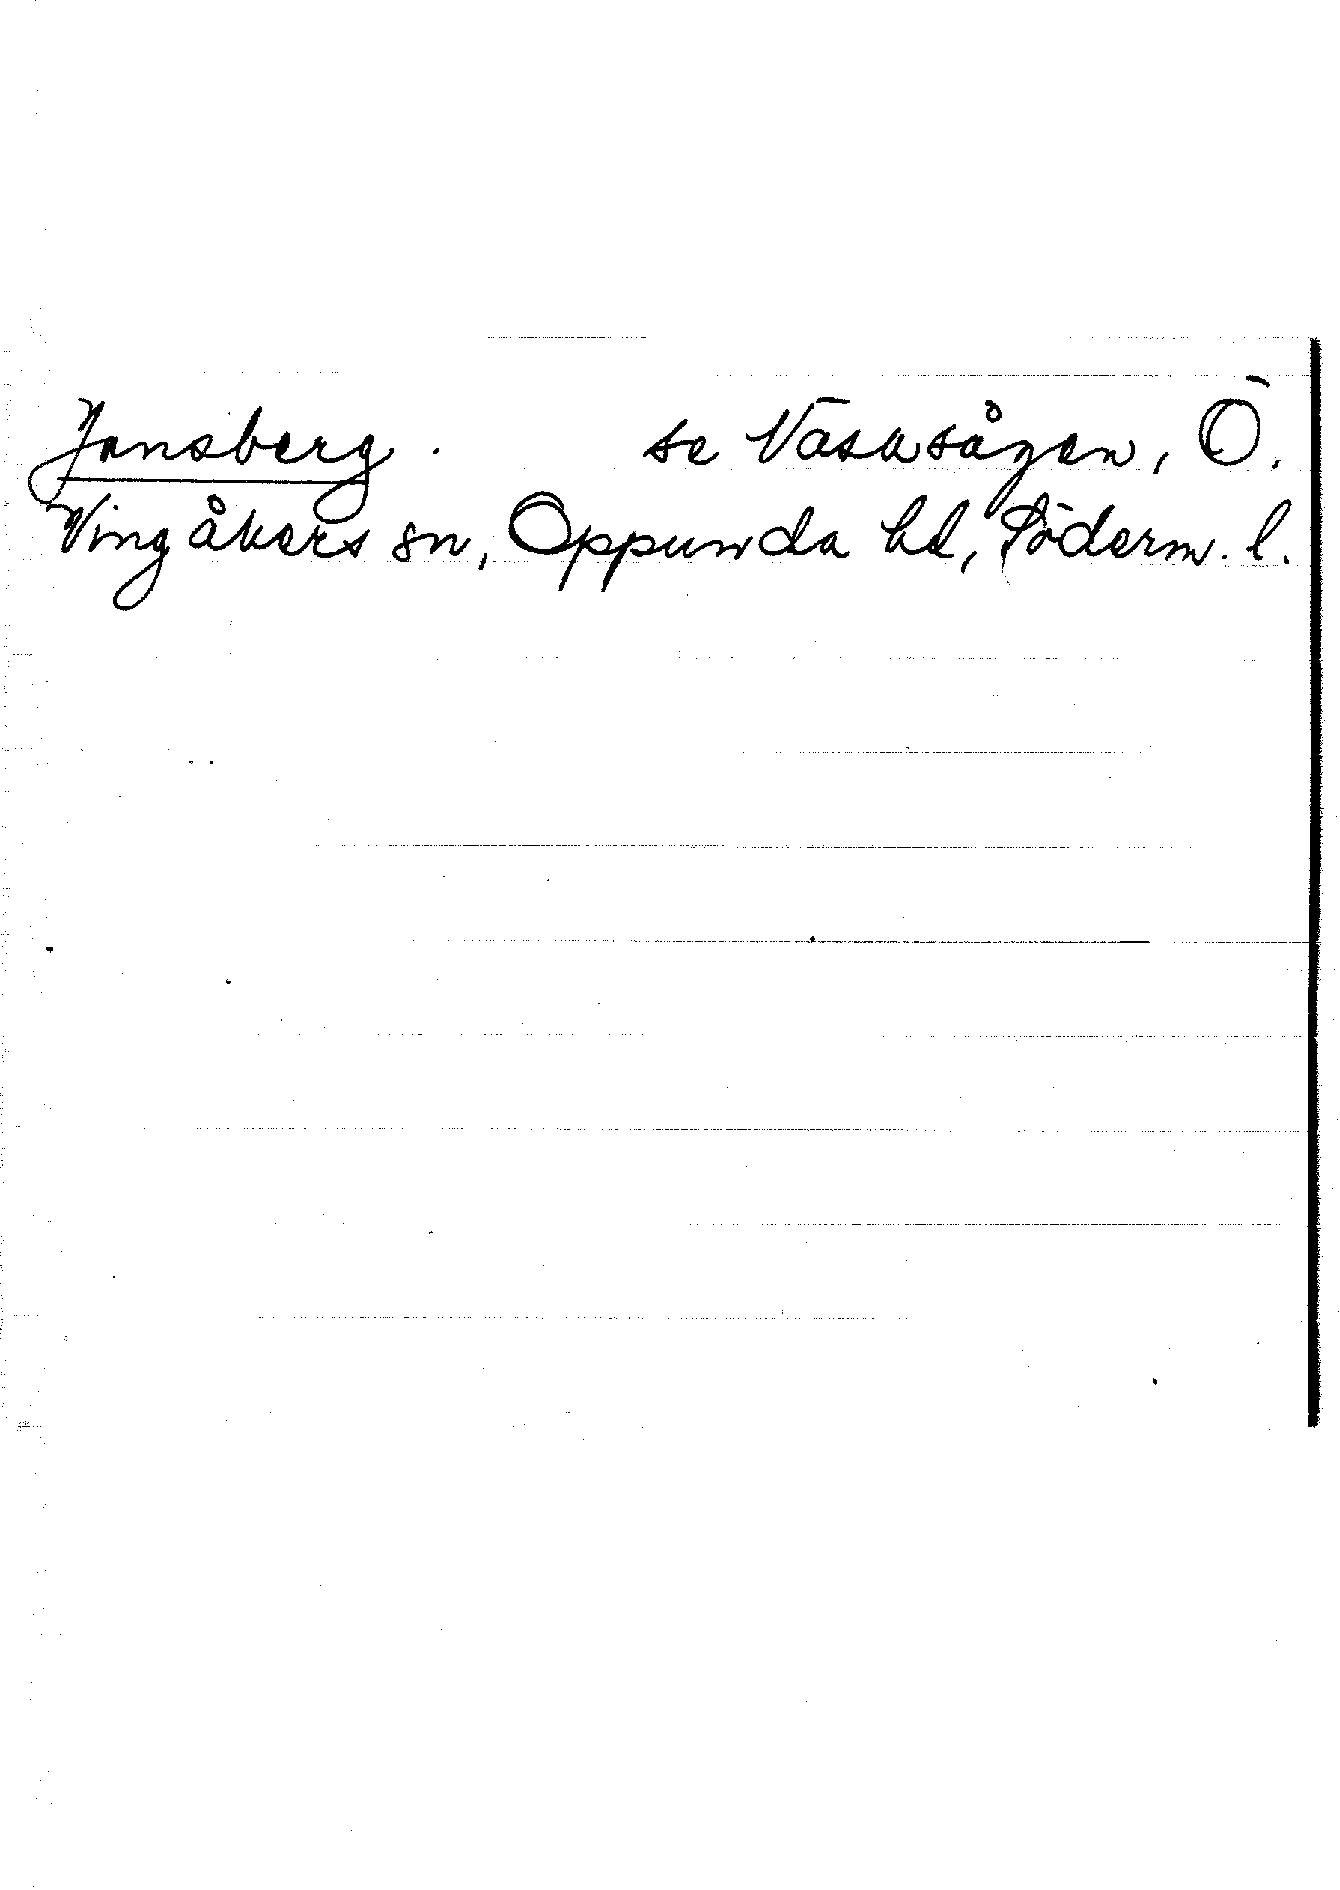 Jonsberg. se Väsasågen, Ö.
Vingåkers sn, Oppunda hd, Söderm. l.